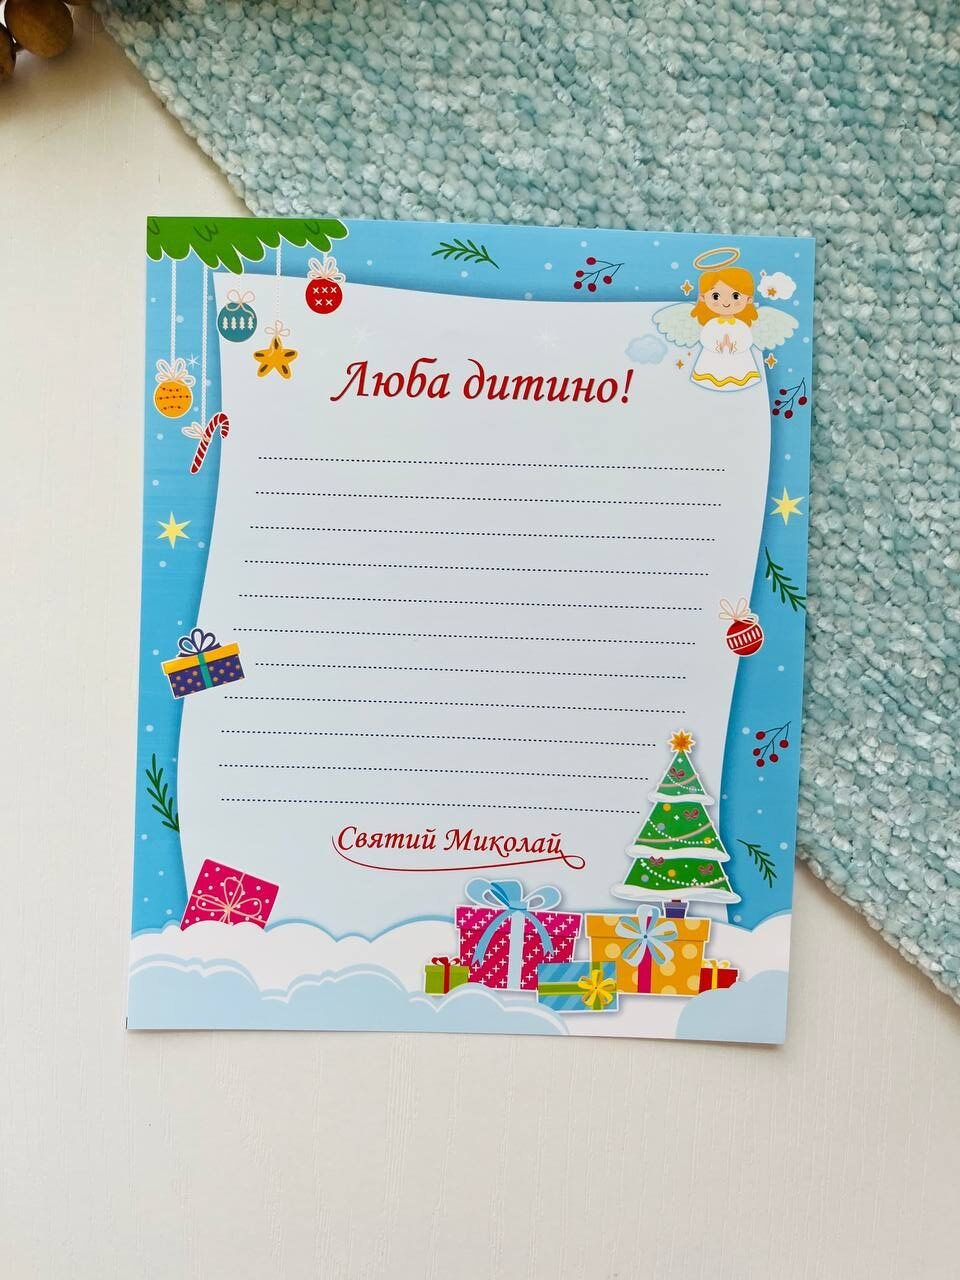 Люба дитино!
Святий Миколай